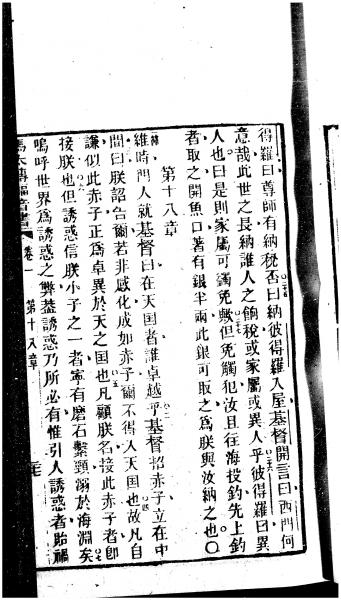 得羅曰尊師有納稅否曰納彼得羅入屋基督開言曰西門何
意哉此世之長納誰人之餉稅或家屬或異人乎彼得羅曰異
人也曰是則家屬可蠲免歟但免觸犯汝且往海投釣先上釣
者取之開魚口著有銀半兩此銀可取之爲朕與汝納之也〇
第十八章
維時門人就基督曰在天国者誰卓越乎基督招赤子立在中
間曰朕詔告爾若非感化成如赤子爾不得入天国也故凡自
謙似此赤子正爲卓異於天之国也凡顧朕名接此赤子者卽
接朕也但誘惑信朕小子之一者寧有磨石繫頸溺於海淵矣
嗚呼世界爲誘惑之弊蓋誘惑乃所必有惟引人誘惑者貽禍
馬太傳福音書 卷一 第十八章